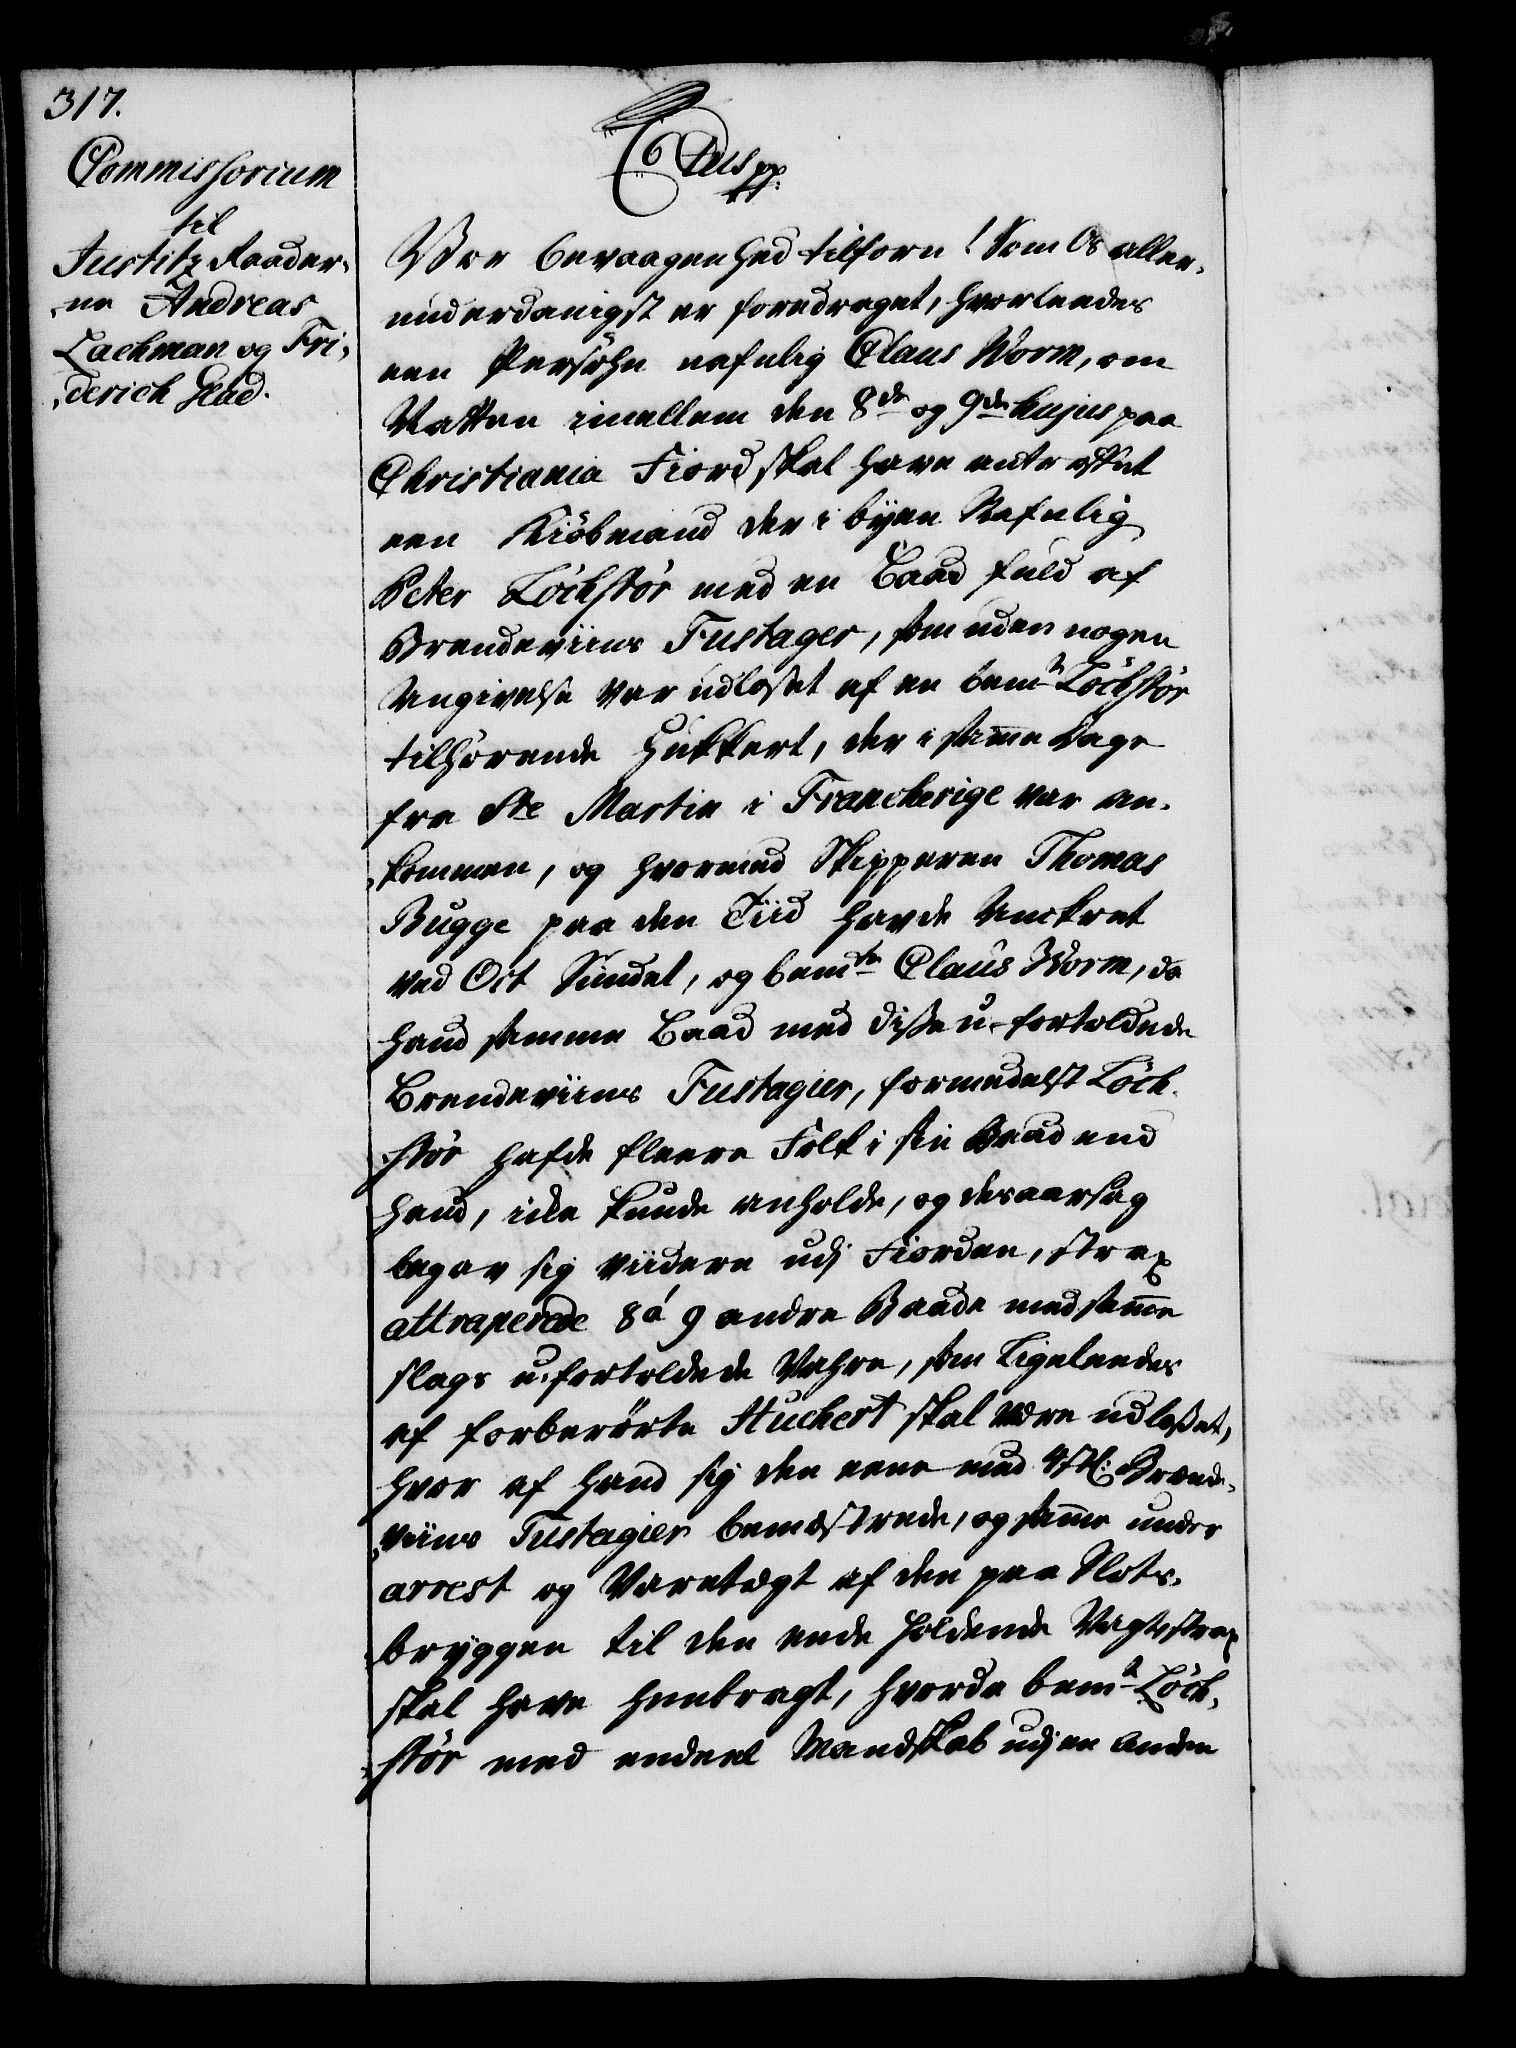 317.
Commissorium
til
Justitz Raader-
ne Andreas
Lachman og Fri-
derich Glad.
C6tus pp
Vor bevaagenhed tilforn! Som Os aller-
underdanigst er foredraget, hvorleedes
een Persohn nafnlig Claus Worm, om
Natten imellem den 8de og 9de hujus paa
Christiania Fiord skal have antroffet
een Kiöbmand der i byen Nafnlig
Peter Löchstör med en Baad fuld af
Brendeviins Fustager, som uden nogen
Angivelse var udlosset af en bemte Löchstör
tilhörende Hukkert, der i samme dage
fra Ste Martin i Franckerige var an-
kommen, og hvormed Skipperen Thomas
Bugge paa den Tiid havde Anckret
ved Oct Sundet, og bemte Claus Worm, da
hand samme Baad med disse u-fortoldede
Brendeviins Fustagier, formedelst Löch-
stör hafde fleere Folk i sin Baad end
hand, icke kunde anholde, og desaarsag
begav sig viidere udj Fiorden, strax
attraperede 8 á 9 andre Baade med samme
slags u-fortoldede Vahre, som Ligeleedes
af forberörte Huckert skal være udlosset,
hvor af hand sig den eene med 4 st: Brænde-
viins Fustagier bemæstrede, og samme under
arrest og Varetægt af den paa Slots-
bryggen til den ende holdende Vagt strax
skal have henbragt, hvorda bemte Löch-
stör med endeel Mandskab udj en anden